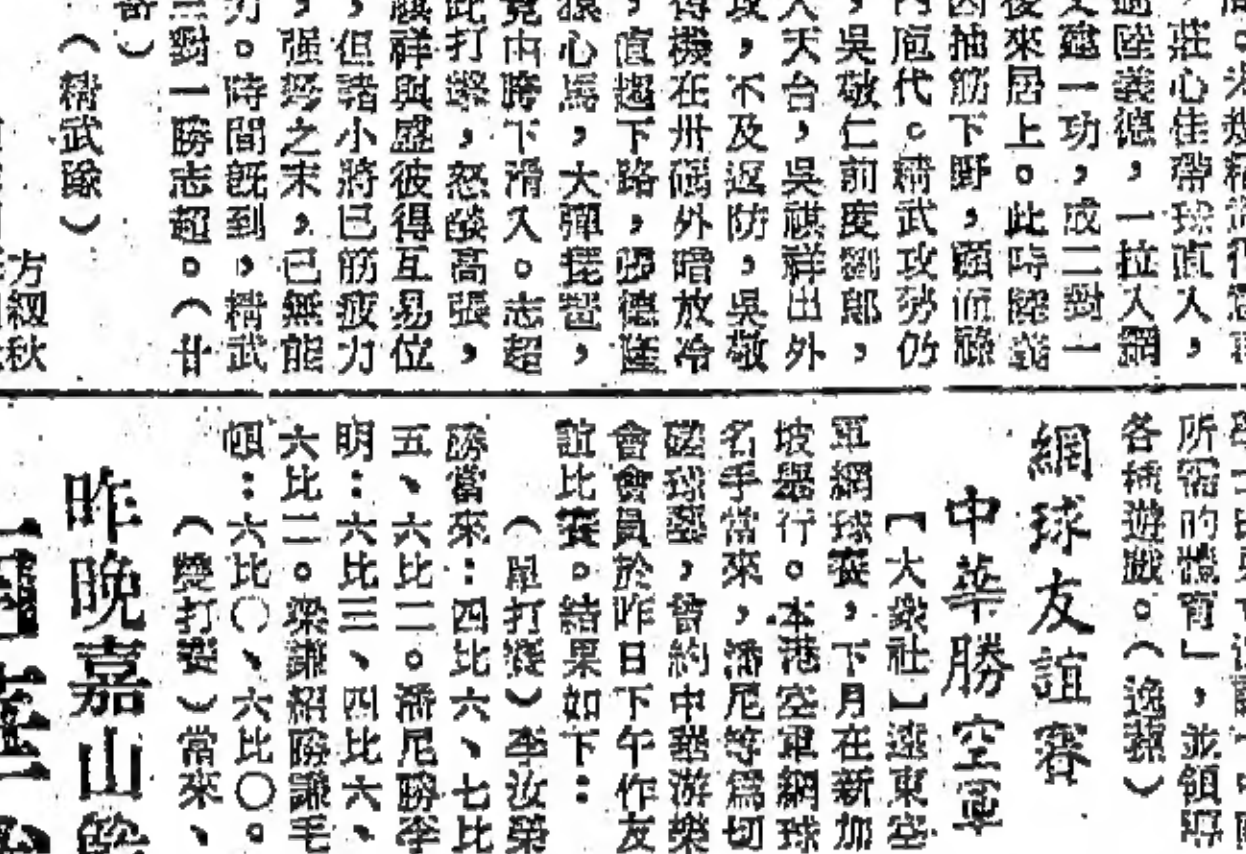 莊心佳帶球直入，
陸義德，一拉入網
建一功，成二對一
後來居上。此時陸義
因抽筋下野，
內庖代。精武攻勢仍
，吳敬仁前度劉郎，
天台，吳祺祥出外
，不及返防，吳敬
得機在卅碼外暗放冷
，直趨下路，
猿心馬，大彈琵琶，
竟由胯下滑入。志超
此打擊，怒燄高張，
祺祥與盛彼得互易位
，但諸小將已筋疲力
，强弩之末，已無能
力。時間旣到，精武
三對一勝志超。（廿
（精武隊）
方紉秋
所需的體育」，並領導
各種遊戲。（逸蓀）
網球友誼賽
中華勝空軍
【大衆社】遠東空
軍網球賽，下月在新加
坡舉行。本港空軍網球
名手當來，潘尼等爲切
磋球藝，曾約中華游樂
會會員於昨日下午作友
誼比賽。結果如下：
（單打賽）李汝榮
勝當來：四比六、七比
五、六比二。潘尼勝李
明：六比三、四比六、
六比二。梁謙紹勝謙毛
頓：六比〇、六比〇。
（雙打賽）當來、
昨晚嘉山